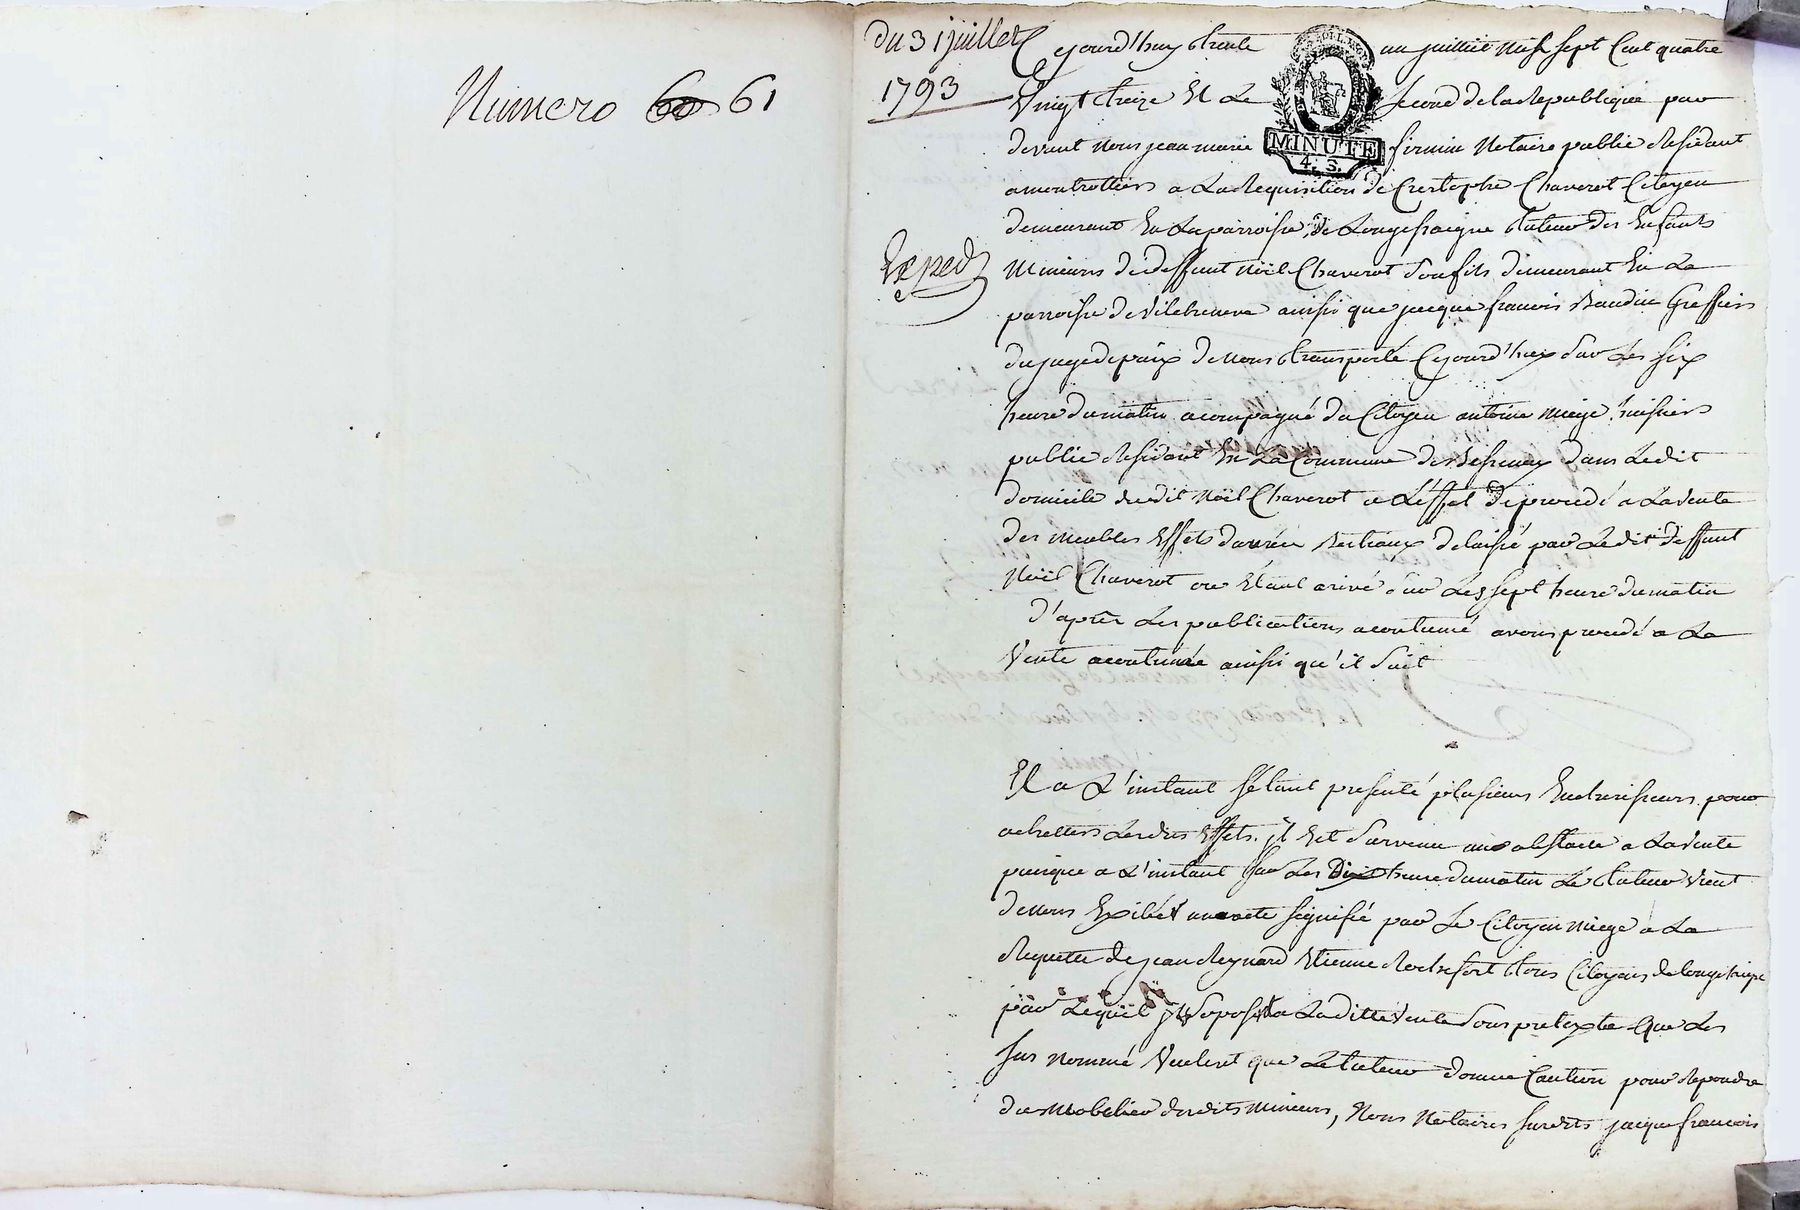 Numero 60 61
du 31 juillet
1793
Exped
Cejourd'huy trente un juillet mil sept Cent quatre
Vingt treize Et Le second de la Republique par
MINUTE
4. S.
devant nous jean marie firmin Notaire public Residant
a montrottier a La Requisition de Crestophe Chaverot Citoyen
demeurant En La parroisse de Longessaigne tuteur des Enfants
Mineurs de deffunt Noël Chaverot son fils demeurant En La
parroisse de Vilcheneve ainsi que jacque francois Baudin Greffier
du juge de paix de nous transporté Cejourd'huy sur Les six
heure du matin acompagné du Citoyen antoine miege huissier
public Residant En La Commune de Bessenay dans Ledit
domicile dudit Noël Chaverot a L'effet de procedé a La vente
des meubles Effets danrée Bestiaux delaissé par Ledit deffunt
Noël Chaverot ou Etant arivé sur Les sept heure du matin
d'après Les publications acoutumé avons procedé a La
Vente acoutumée ainsi qu'il suit
Et a L'instant sétant presenté plusieurs Encherisseurs pour
achetter Lesdits Effets. jl Est survenu une obstacle a La vente
puisque a L'instant sur Les Dix heure du matin Le tuteur vient
de nous Exibér un acte signifié par Le Citoyen miege a La
Requette de jean Reynard Etienne Rochefort tous Citoyens de longessaigne
par Lequel jls soposent a La ditte vente sous pretexte que Les
sus nommé veulent que Le tuteur donne Caution pour Repondre
du mobelier desdits mineurs, Nous Notaires susdits jacque francois